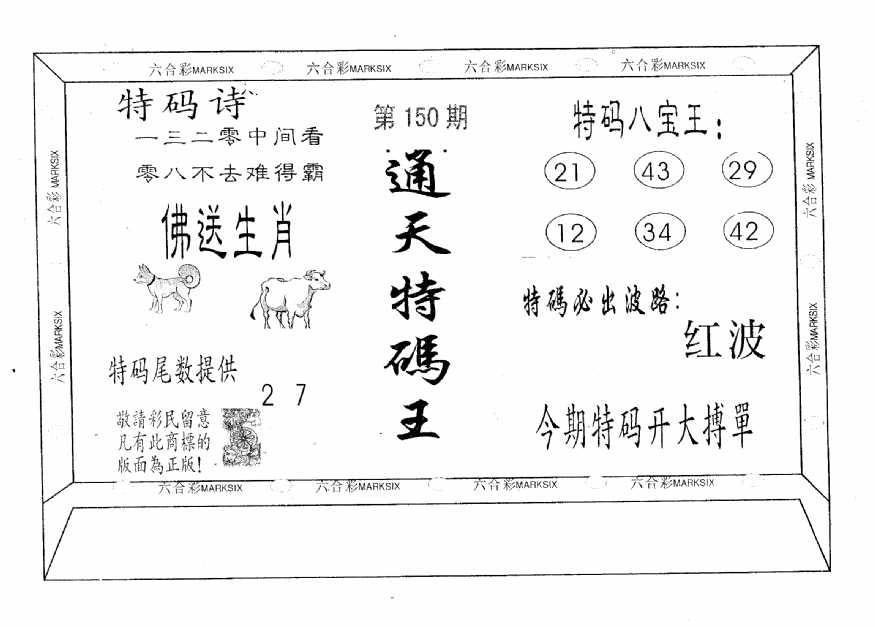 六合彩MARKSIX 六合彩MARKSIX 六合彩MARKSIX 六合彩MARKSIX
特码诗
一三二零中间看
零八不去难得霸
佛送生肖
特码尾数提供
2 7
敬請彩民留意
凡有此商標的
版面為正版!
第150期
通天特碼王
特码八宝王:
21 43 29
12 34 42
特碼必出波路:
红波
今期特码开大搏單
六合彩MARKSIX
六合彩MARKSIX
六合彩MARKSIX
六合彩MARKSIX
六合彩MARKSIX 六合彩MARKSIX 六合彩MARKSIX 六合彩MARKSIX